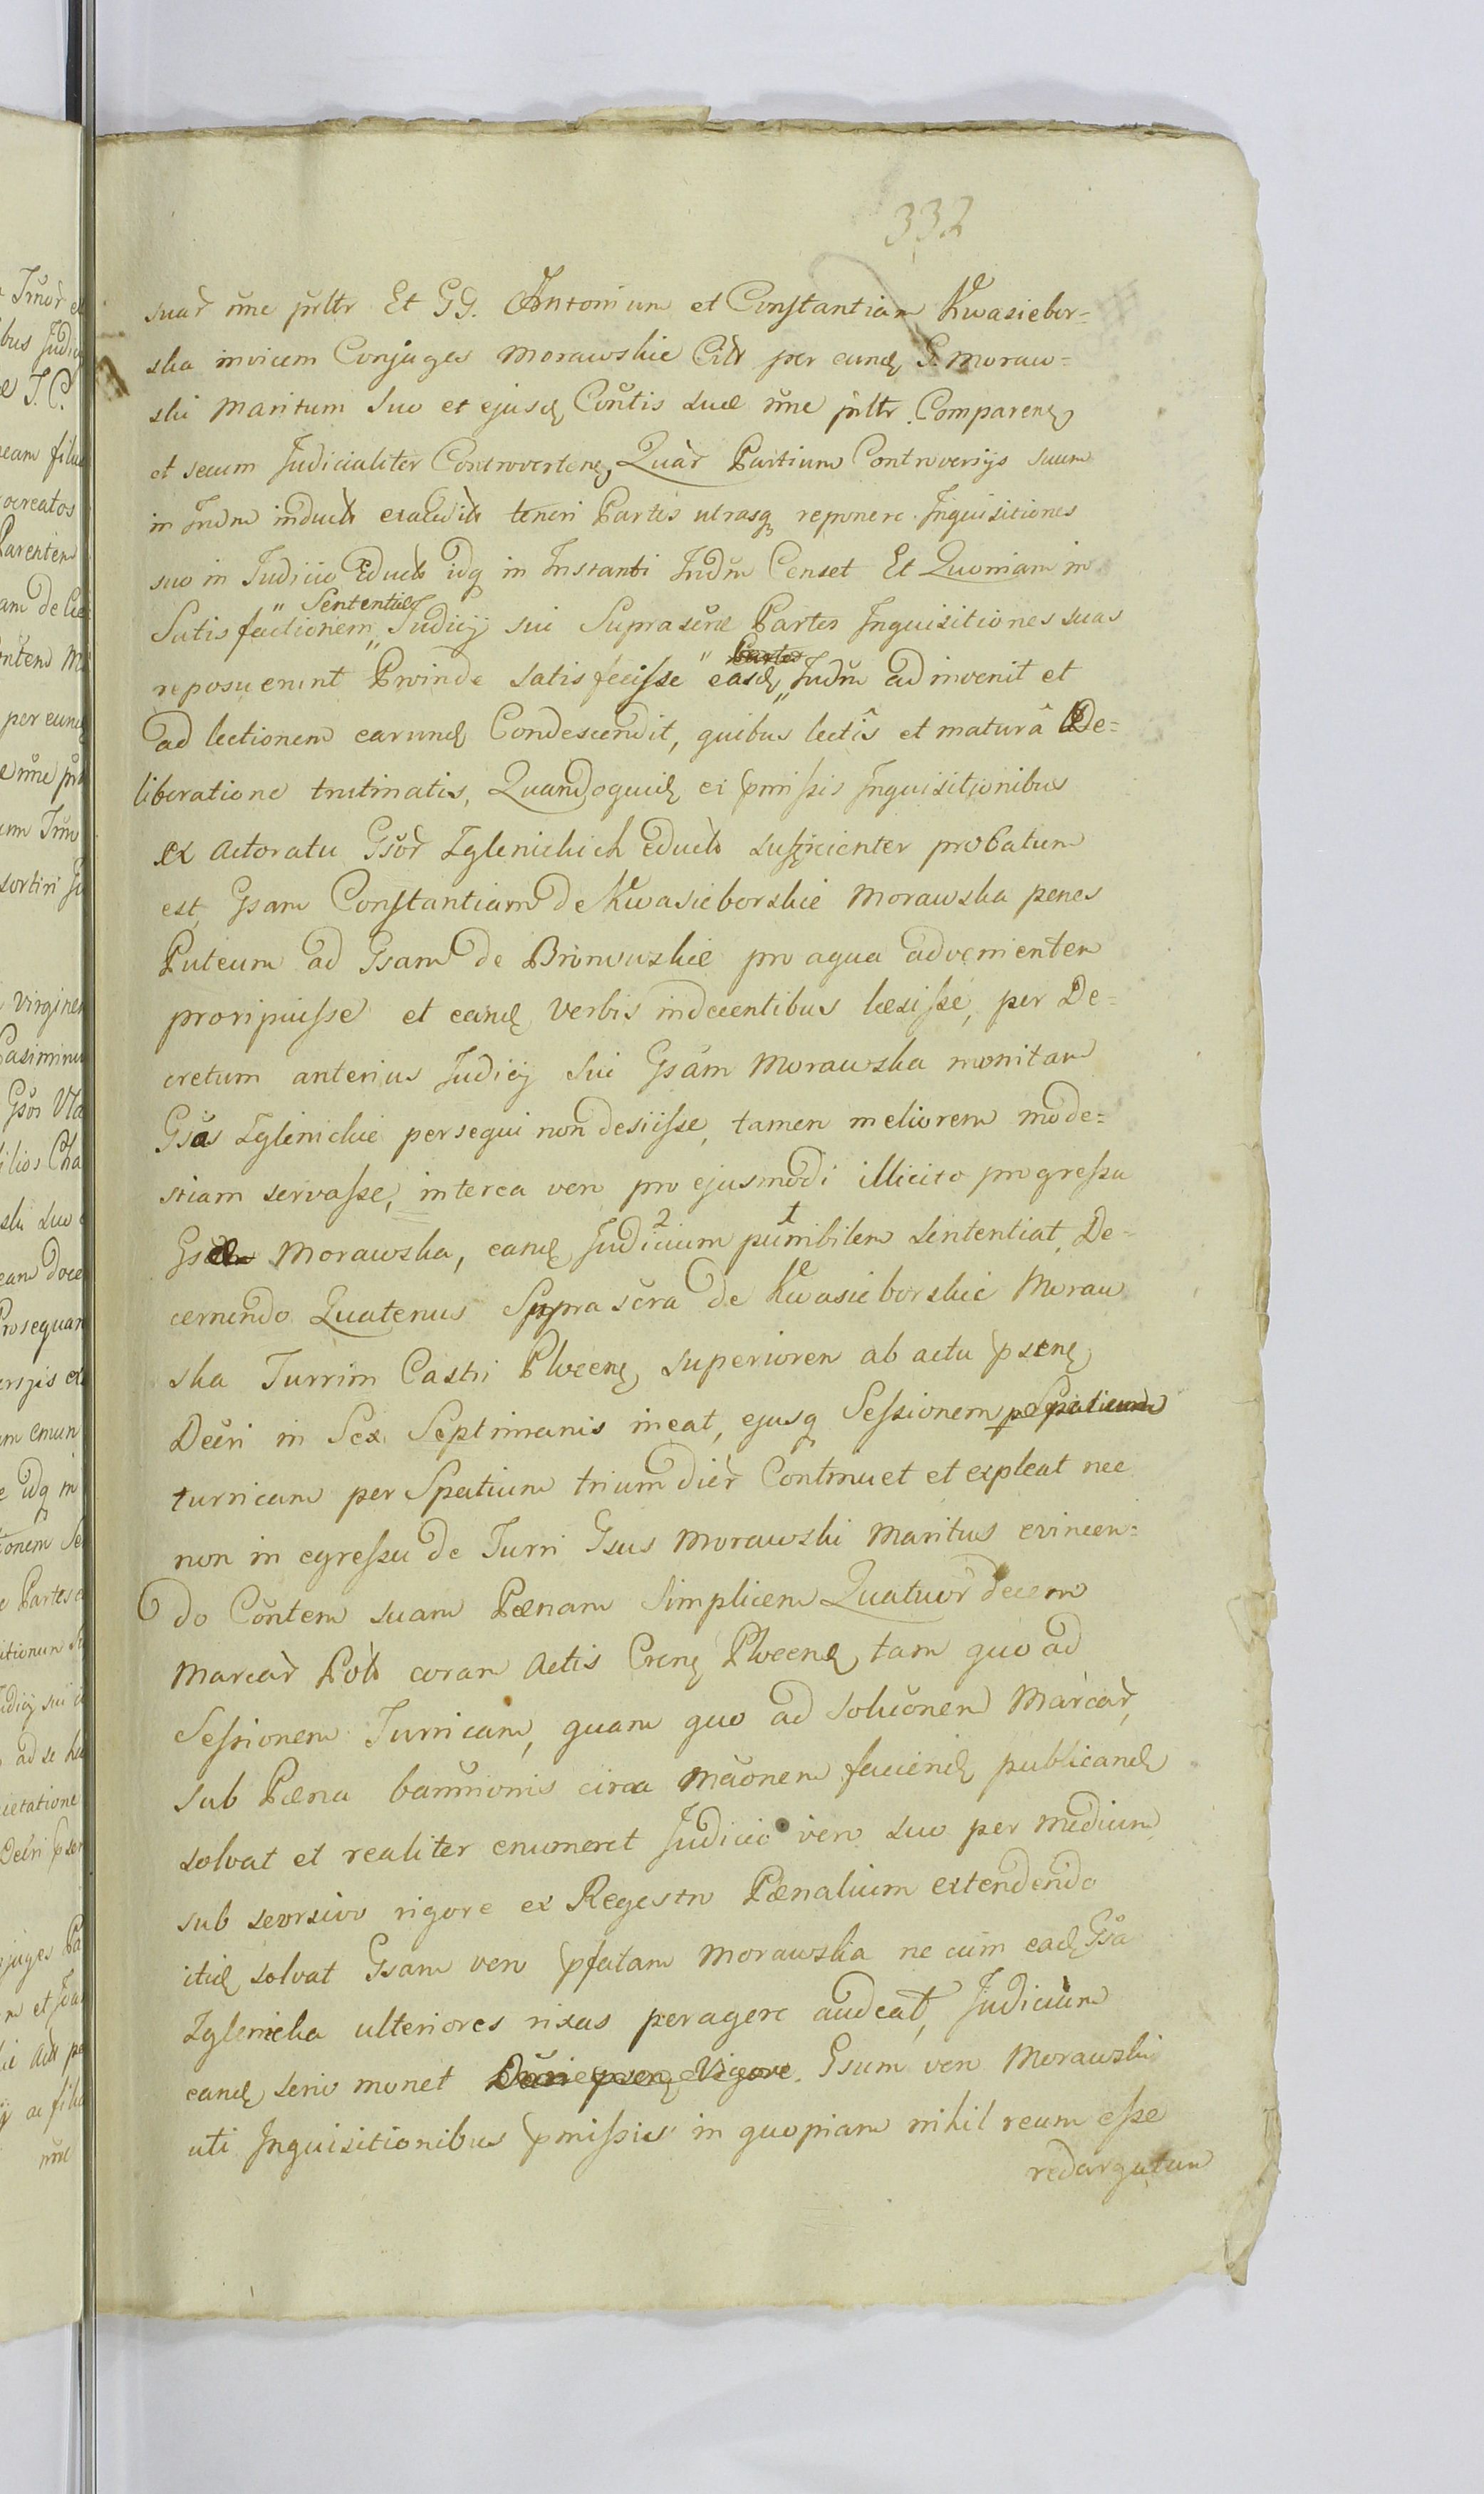 332
suar nne pnltr Et GG. Antonium et Constantiam Kwasiebor=
ska invicem Conjuges Morawskie Citt per eund G. Moraw=
ski Maritum Suo et ejusd Contis suæ nne pnltr Comparen
et secum Judicialiter Controverten, Quar Partium Controversijs suum
in Jndm induct exaudit teneri Partes utrasq reponere Jnquisitiones
suo in Judicio Educt idq in Jnstanti Judm Censet Et Quoniam in
Satisfactionem Sententiæ Judicij sui Suprascræ Partes Jnquisitiones suas
reposuerunt Proinde satisfecisse easd Judm adinvenit et
ad lectionem earund Condescendit, quibus lectis et maturâ De=
liberatione trutinatis, Quandoquid ex pmissis Jnquisitionibus
ex Actoratu Gsor Zglenickich educt sufficienter probatum
est, Gsam Constantiam de Kwasieborskie Morawska penes
Puteum ad Gsam de Bromowskie pro aqua advenientem
proripuisse et eand Verbis indecentibus læsisse, per De=
cretum anterius Judicij Sui Gsam Morawska monitam
Gsas Zglenickie persequi non desiisse, tamen meliorem mode=
stiam servasse, interea vero pro ejusmodi illicito progressu
Gsæ Morawska, eand Judicium 2 punibilem 1 Sententiat, De=
cernendo Quatenus Suprascra de Kwasieborskie Moraw
ska Turrim Castri Plocen superiorem ab actu psen
Decri in Sex Septimanis ineat, ejusq Sessionem
turricam per Spatium trium dier Continuet et expleat nec
non in egressu de Turri Gsus Morawski Maritus evincen=
do Contem suam Pænam Simplicem Quatuor decem
Marcar Pol coram Actis Cren Plocen, tam quo ad
Sessionem Turricam, quam quo ad solucnem Marcar,
sub Pæna bannionis circa Macnem faciend publicand
solvat et realiter enumeret Judicio vero suo per medium
sub seorsivo rigore ex Regestro Pænalium extendendo
itid solvat Gsam vero pfatam Morawska ne cum ead Gsa
Zglenicka ulteriores rixas peragere audeat, Judicium
eand serio monet Gsum vero Morawski
uti Jnquisitionibus pmissis in quopiam nihil reum esse
redargutum